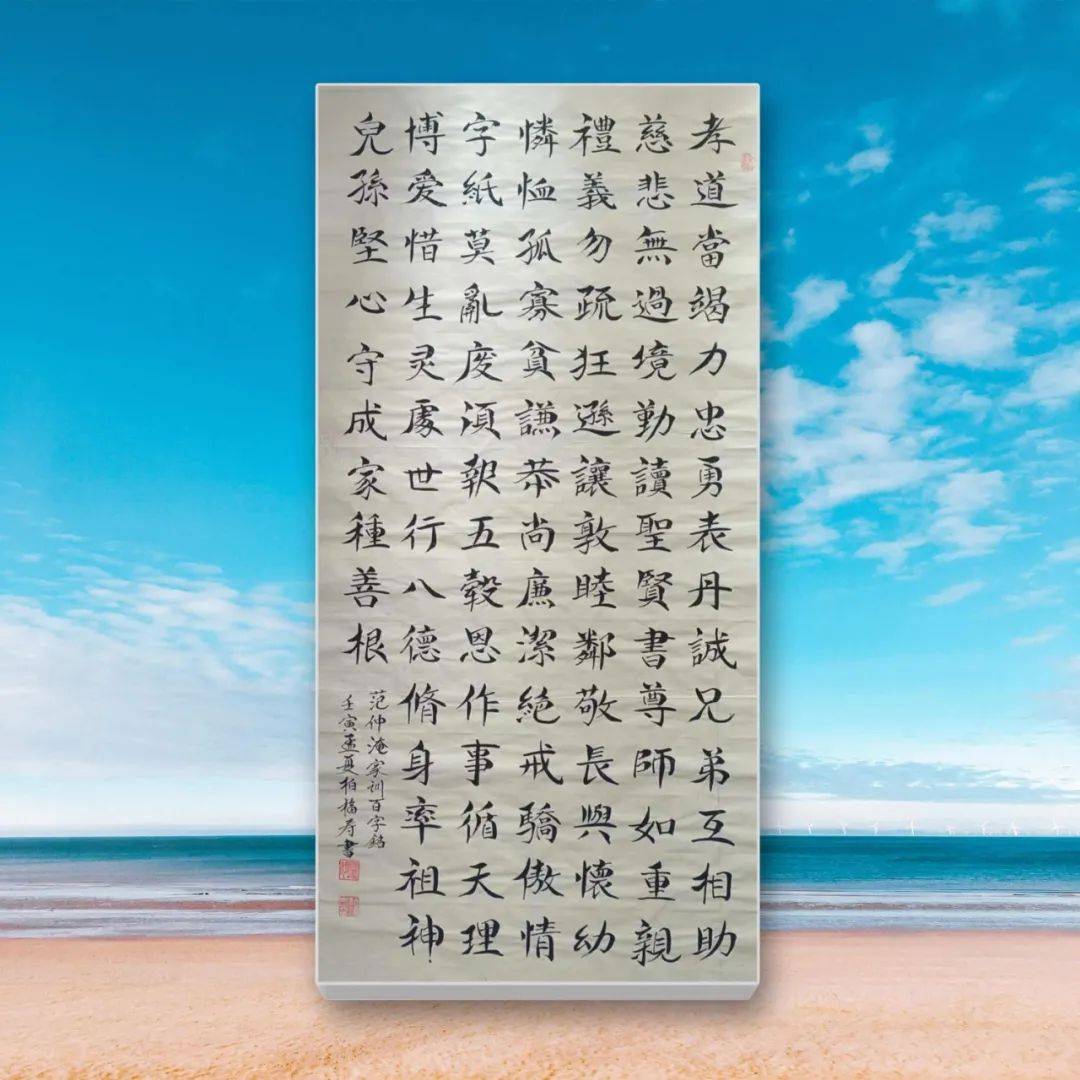 孝道當竭力忠勇表丹誠兄弟互相助
慈悲無過境勤讀聖賢書尊師如重親
禮義勿疏狂遜讓敦睦鄰敬長與懷幼
憐恤孤寡貧謙恭尚廉潔絕戒驕傲情
字紙莫亂废湏報五穀恩作事循天理
博爱惜生灵處世行八德脩身率祖神
兒孫堅心守成家種善根
范仲淹家训百字銘
壬寅孟夏柏寿書